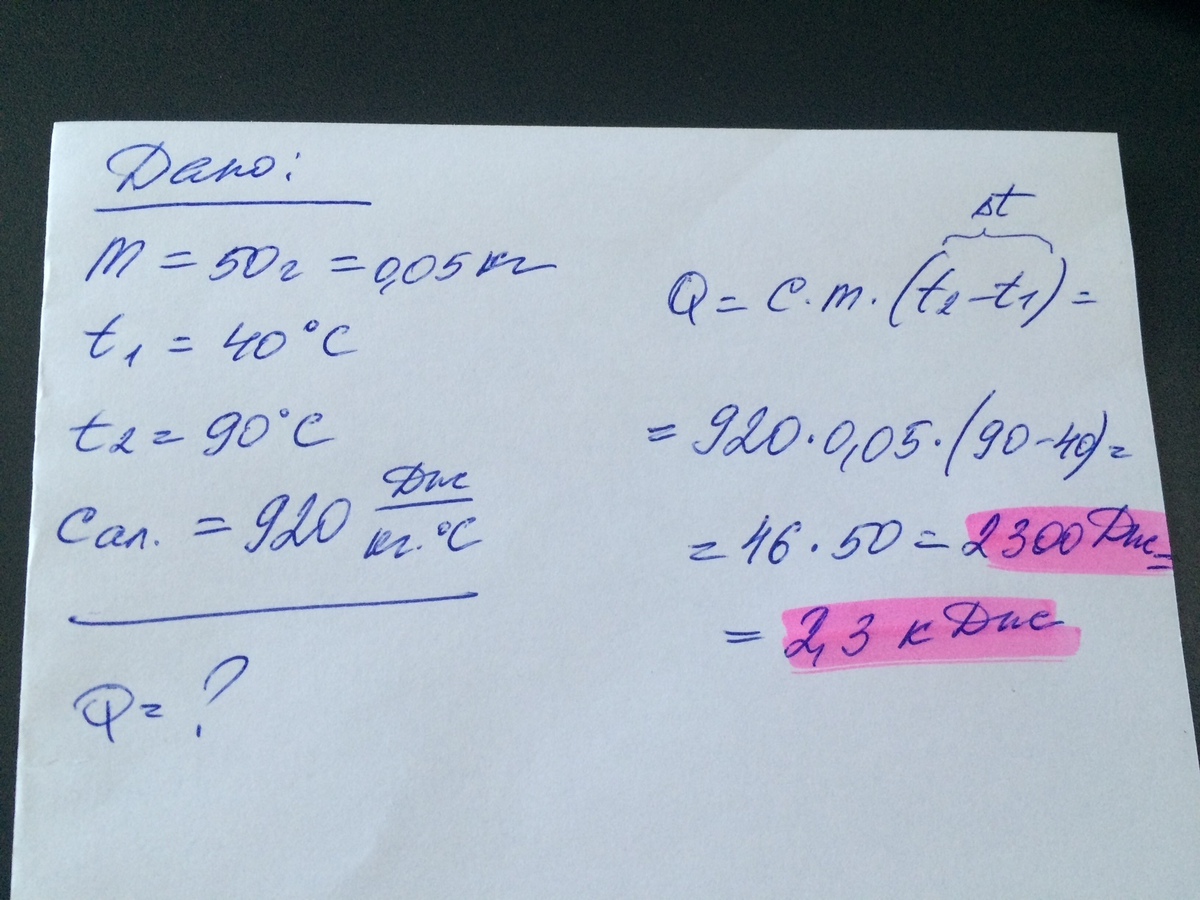 Дано:
m = 50г = 0,05 кг
t₁ = 40°C
t₂ = 90°C
Cал. = 920 Дж/кг·°C
Q = ?
Δt
Q = c·m·(t₂-t₁) =
= 920·0,05·(90-40) =
= 46·50 = 2300 Дж =
= 2,3 кДж